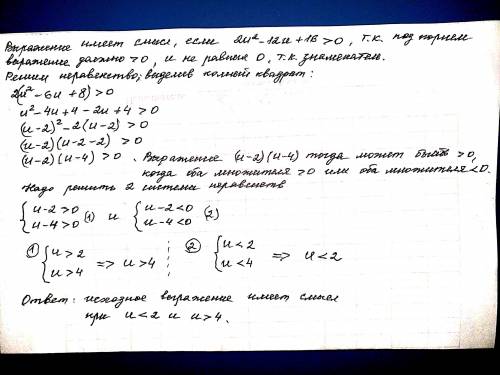 Выражение имеет смысл, если 2u²-12u+16>0, т.к. под корнем
выражение должно ≥0, и не равние 0, т.к. знаменатель.
Решим неравенство, выделив полный квадрат:
2(u²-6u+8)>0
u²-4u+4-2u+4>0
(u-2)²-2(u-2)>0
(u-2)(u-2-2)>0
(u-2)(u-4)>0. Выражение (u-2)(u-4) тогда может быть >0,
когда оба множителя >0 или оба множителя <0.
Надо решить 2 системы неравенств
{u-2>0 u-4>0 (1) и {u-2<0 u-4<0 (2)
① {u>2 u>4 => u>4 ② {u<2 u<4 => u<2
Ответ: исходное выражение имеет смысл
при u<2 и u>4.